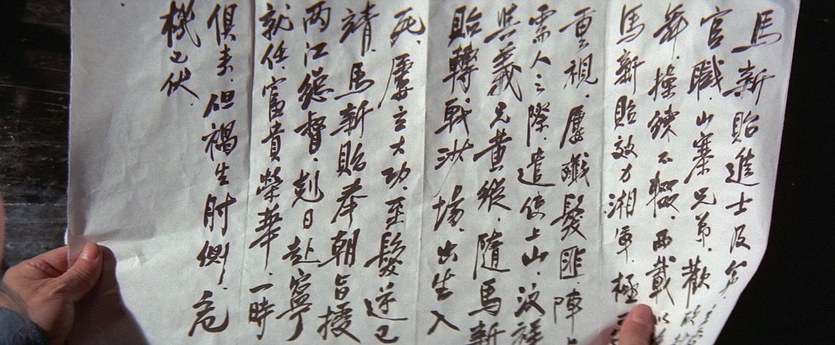 馬新貽進士及第
官職,山寨兄弟,歡欣鼓
舞,操練不輟,兩載以
馬新貽效力湘軍,極
重視,屢殲髮匪,陣上
需人之際,遣使上山,汶祥
與義兄黃縱,隨馬新
貽轉戰沙場,出生入
死,屢立大功,至髮逆已
靖,馬新貽奉朝旨授
两江總督,剋日赴寧
就任,富貴榮華,一時
俱來,但禍生肘側,危
機已伏.